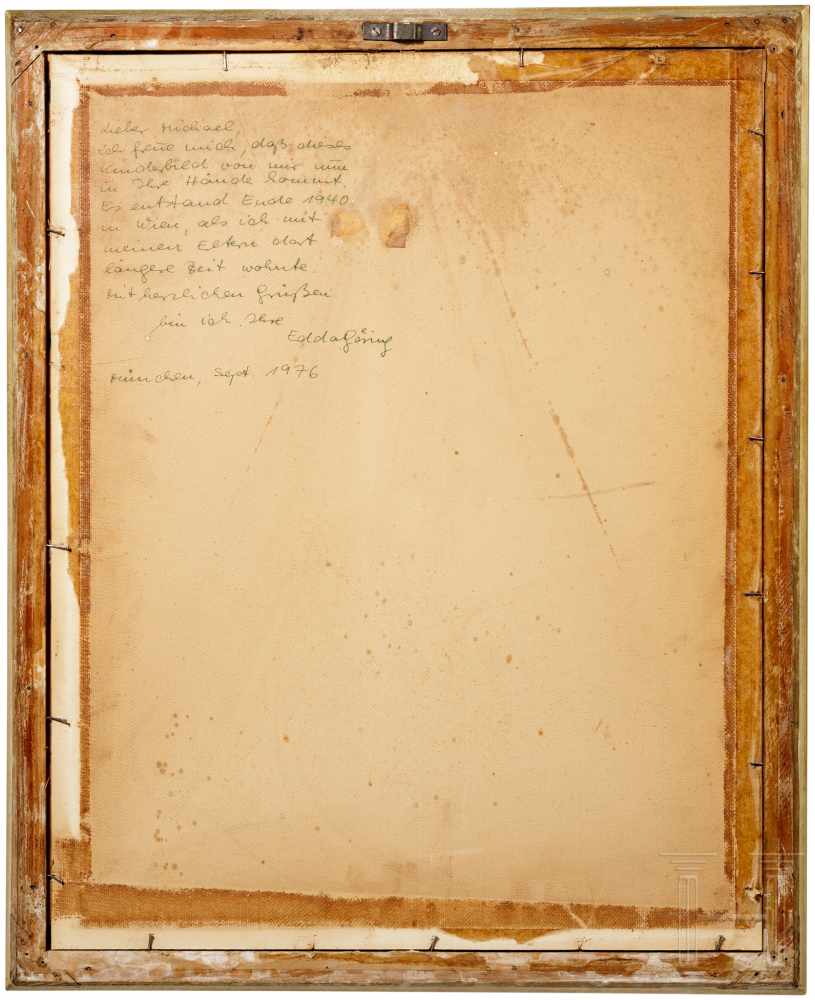 Lieber Michael,
ich freue mich, daß dieses
Kinderbild von mir nun
in Ihre Hände kommt.
Es entstand Ende 1940
in Wien, als ich mit
meinen Eltern dort
längere Zeit wohnte.
Mit herzlichen Grüßen
bin ich Ihre
Edda Göring
München, Sept. 1976